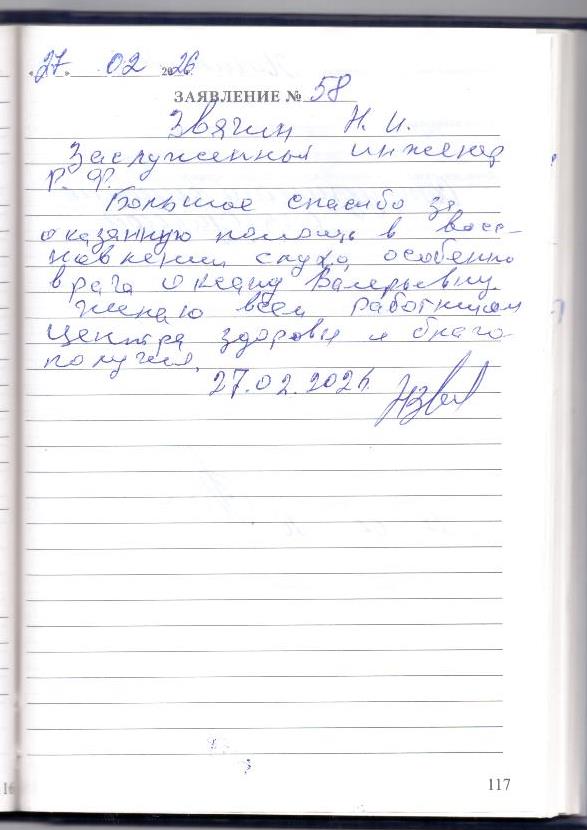 27. 02 2026
ЗАЯВЛЕНИЕ № 58
Звягин Н. И.
Заслуженный инженер
Р. Ф.
Большое спасибо за
оказанную помощь в восс-
новлении слуха, особенно
врача Оксану Валерьевну.
Желаю всем работникам
центра здоровья и благо-
получия.
27.02.2026.
117